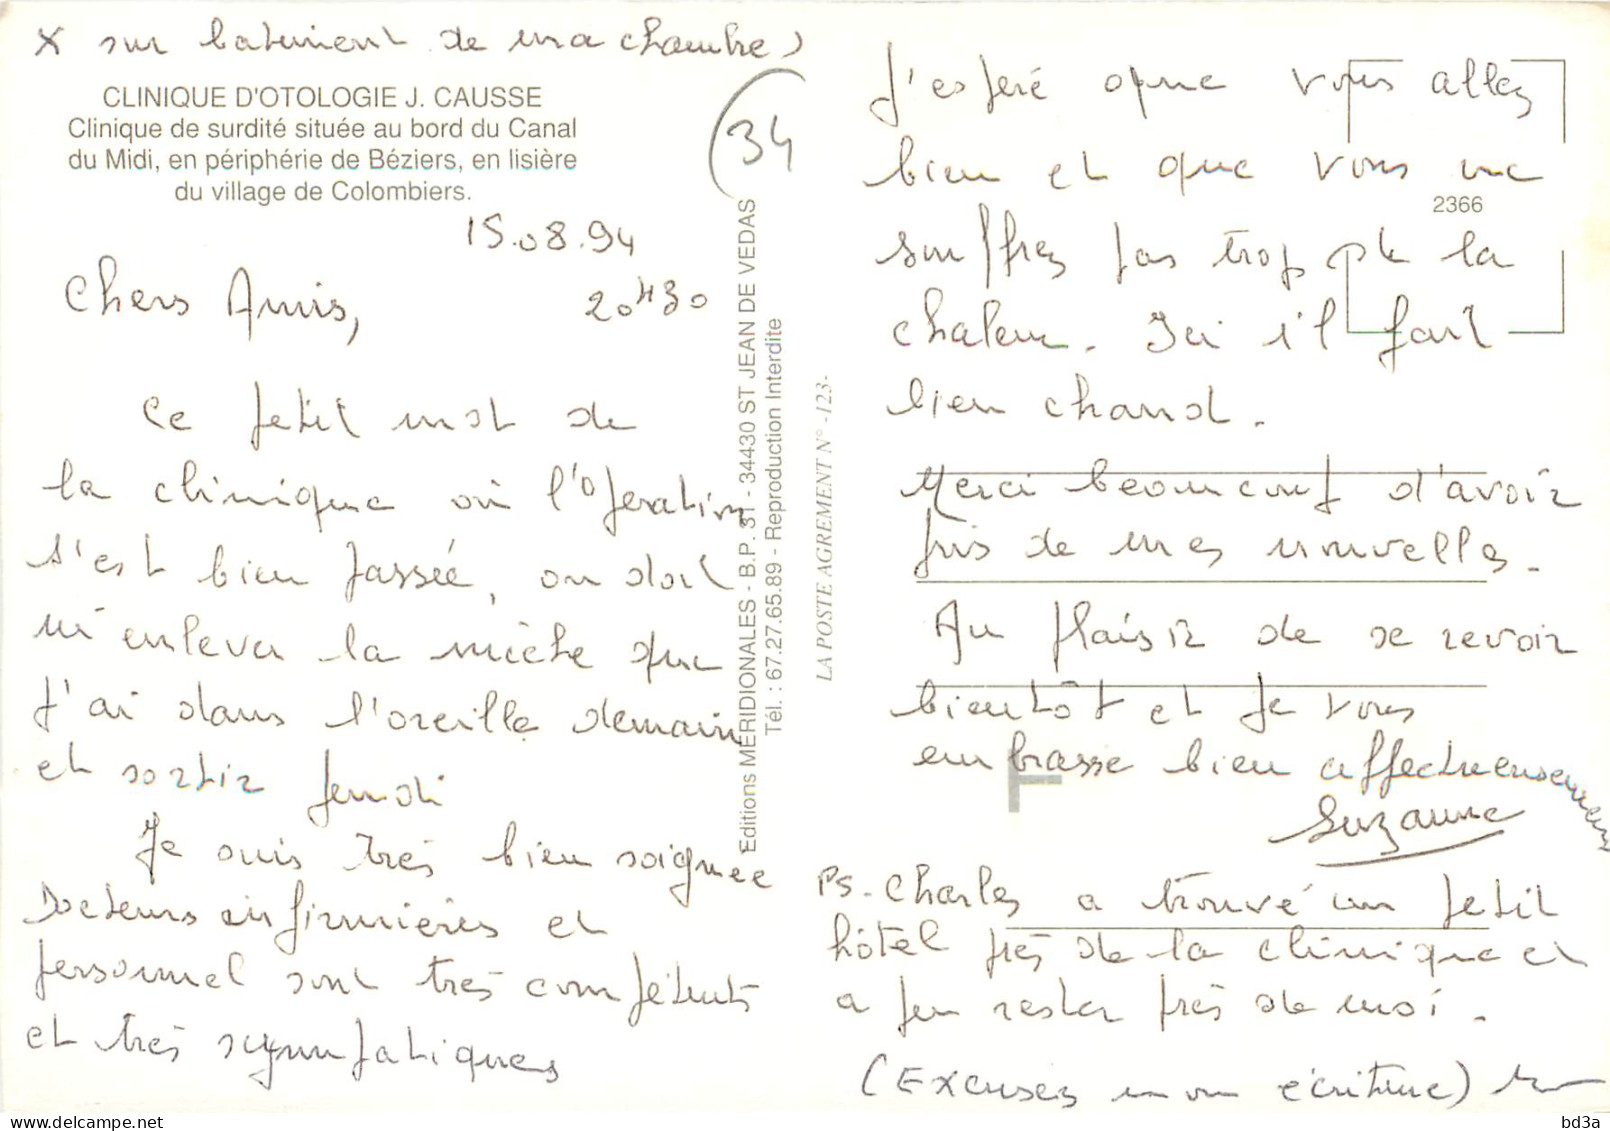 X sur batiment de ma chambre)
CLINIQUE D'OTOLOGIE J. CAUSSE
Clinique de surdité située au bord du Canal
du Midi, en périphérie de Béziers, en lisière
du village de Colombiers.
(34
15.08.94
20H30
Chers Amis,
Ce petit mot de
la clinique où l'opération
s'est bien passée, on doit
m'enlever la mèche que
J'ai dans l'oreille demain
et sortir jeudi
Je suis très bien soignée
Docteurs infirmières et
personnel sont très compétents
et très sympatiques
Editions MÉRIDIONALES - B.P. 31 - 34430 ST JEAN DE VEDAS
Tél. : 67.27.65.89 - Reproduction Interdite
LA POSTE AGREMENT N° -123-
2366
J'espère que vous allez
bien et que vous ne
souffrez pas trop de la
chaleur. Ici i'l fait
bien chaud.
Merci beaucoup d'avoir
pris de mes nouvelles.
Au plaisir de se revoir
bientôt et je vous
embrasse bien affectueusement
Suzanne
PS. Charles a trouvé un petit
hôtel près de la clinique et
a pu rester près de moi.
(Excusez mon écriture)
bd3a